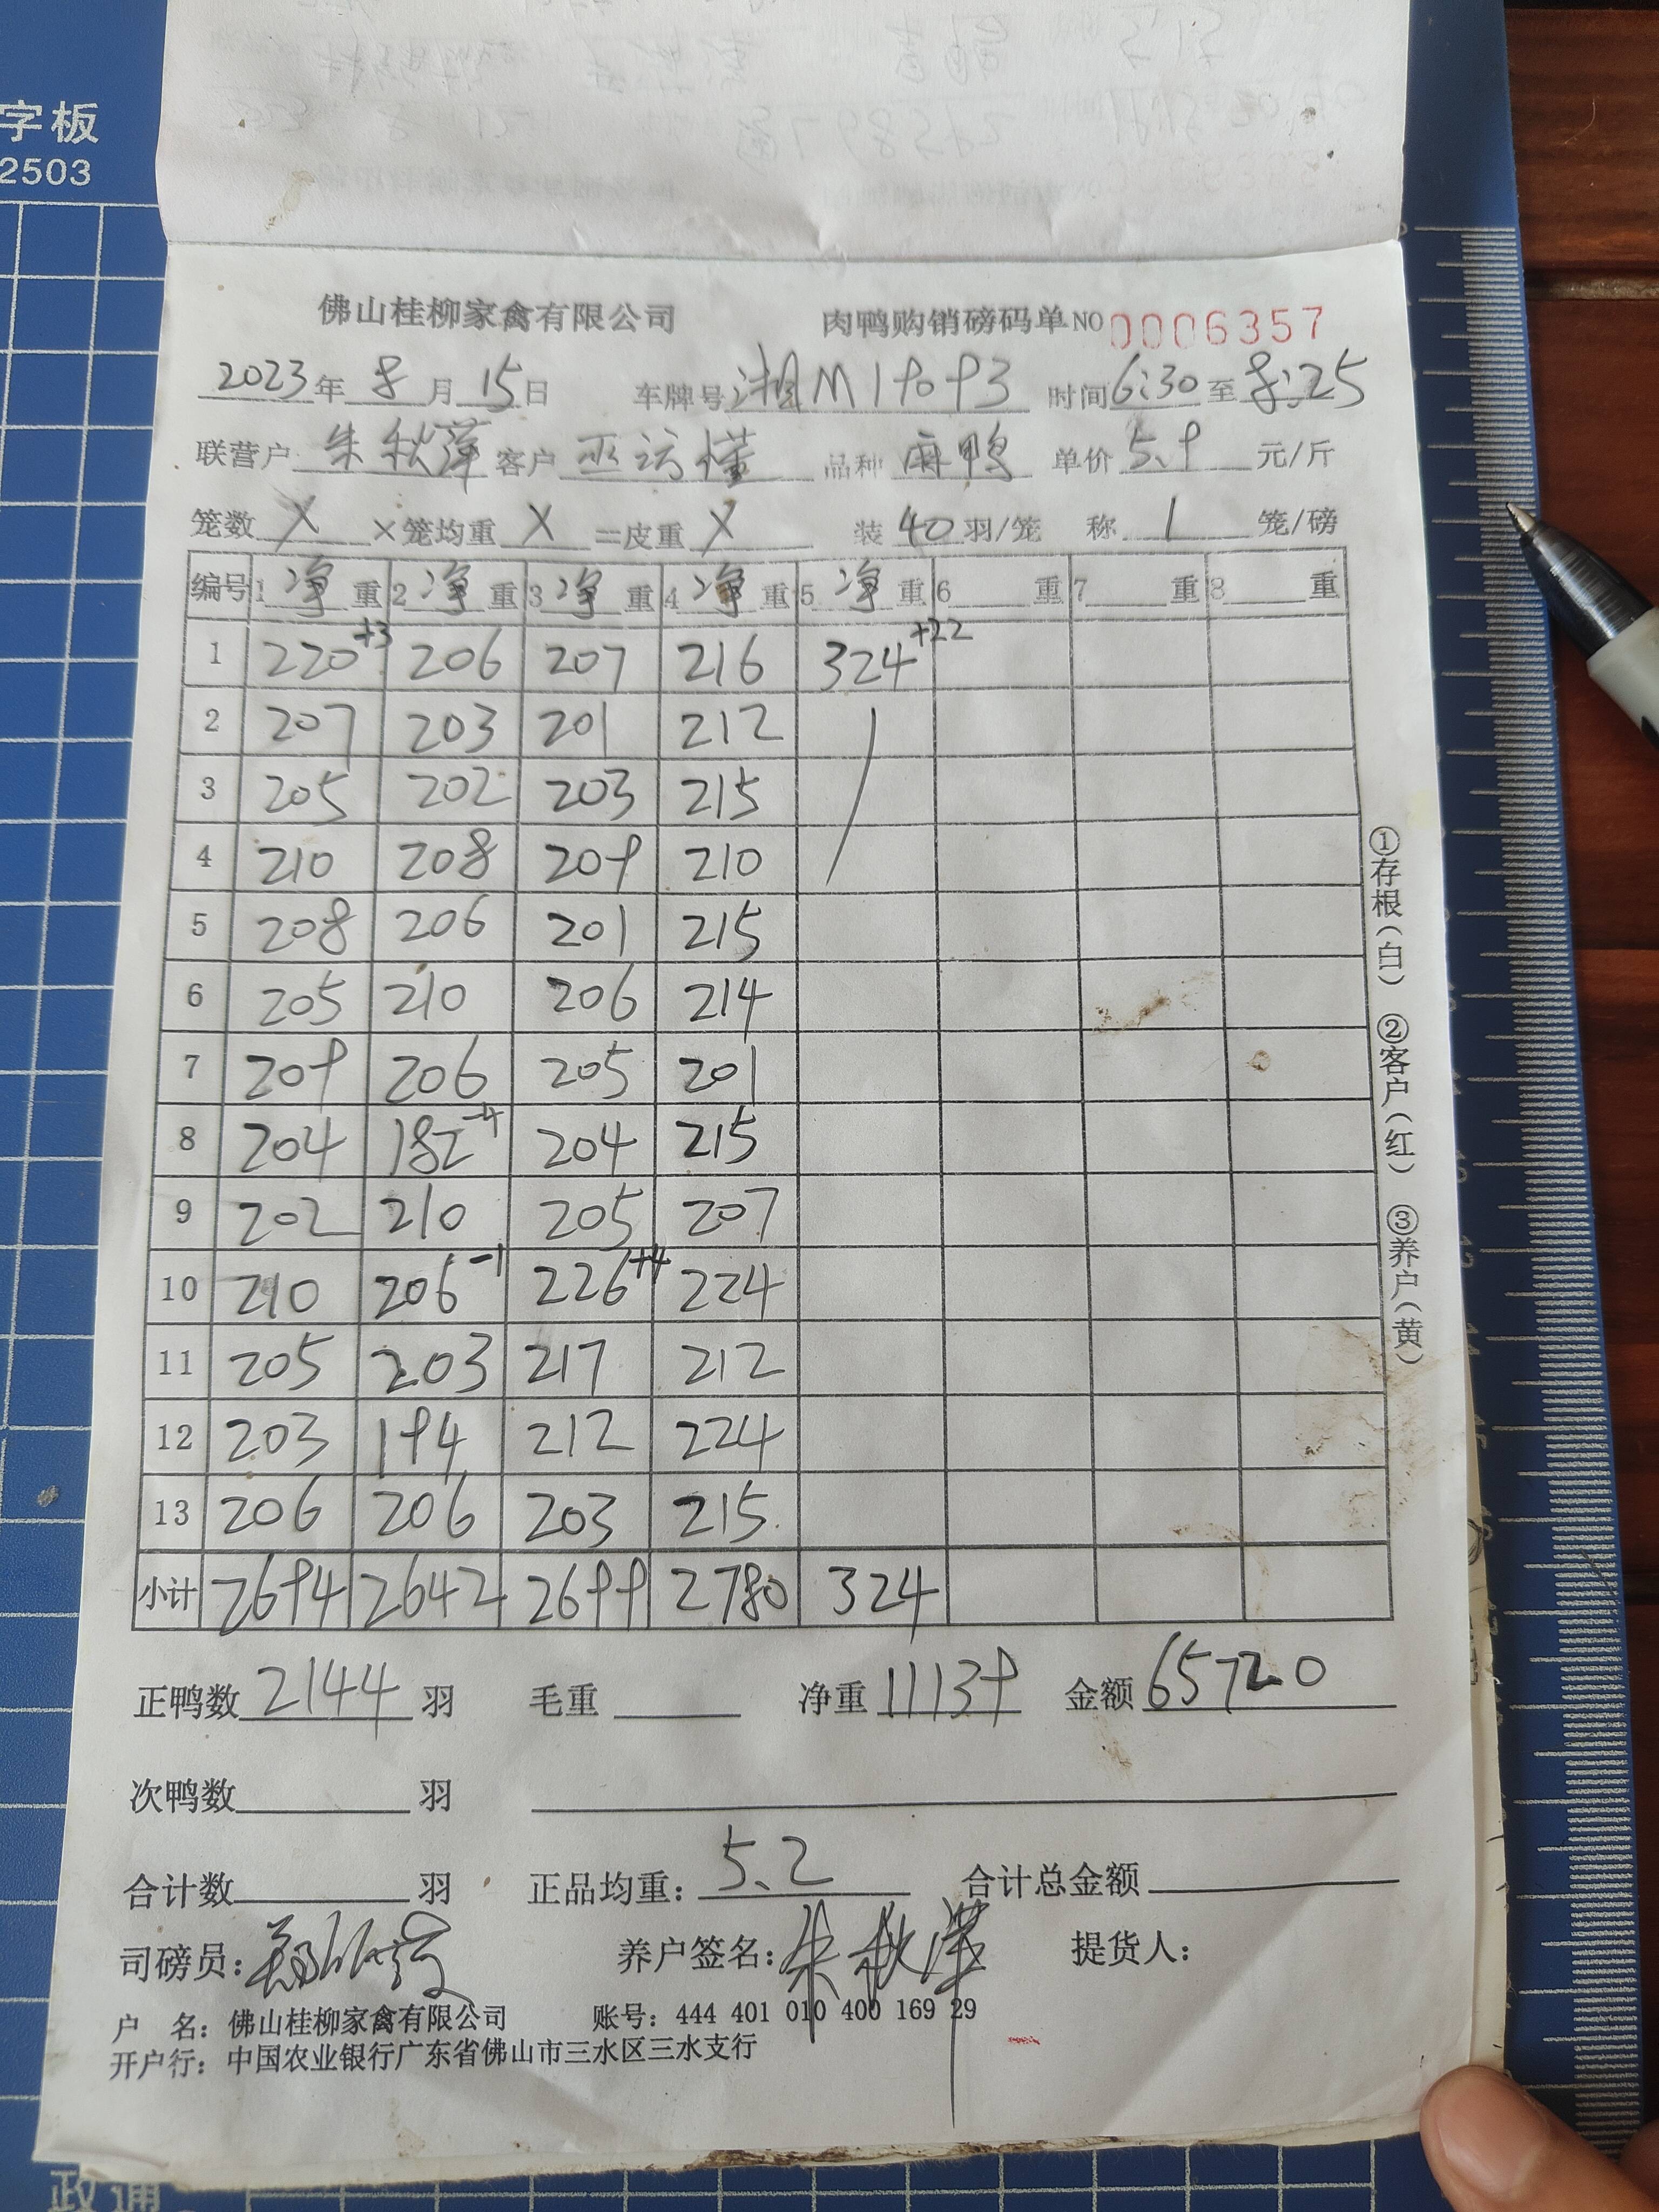 字板
2503
佛山桂柳家禽有限公司 肉鸭购销磅码单 NO 0006357
2023年 8月 15日 车牌号 湘M19093 时间 6:30 至 8:25
联营户 朱秋萍 客户 巫访懂 品种 麻鸭 单价 5.9 元/斤
笼数 X ×笼均重 X =皮重 X 装 40 羽/笼 称 1 笼/磅
编号 1 净 重 2 净 重 3 净 重 4 净 重 5 净 重 6 重 7 重 8 重
1 220+3 206 207 216 324+22
2 207 203 201 212
3 205 202 203 215
4 210 208 209 210
5 208 206 201 215
6 205 210 206 214
7 209 206 205 201
8 204 182-4 204 215
9 202 210 205 207
10 210 206-1 226+4 224
11 205 203 217 212
12 203 194 212 224
13 206 206 203 215
小计 2694 2642 2699 2780 324
正鸭数 2144 羽 毛重 净重 11139 金额 65720
次鸭数 羽
合计数 羽 正品均重: 5.2 合计总金额
司磅员: 养户签名: 朱秋萍 提货人:
户 名: 佛山桂柳家禽有限公司 账号: 444 401 010 400 169 29
开户行: 中国农业银行广东省佛山市三水区三水支行
①存根(白) ②客户(红) ③养户(黄)
政通